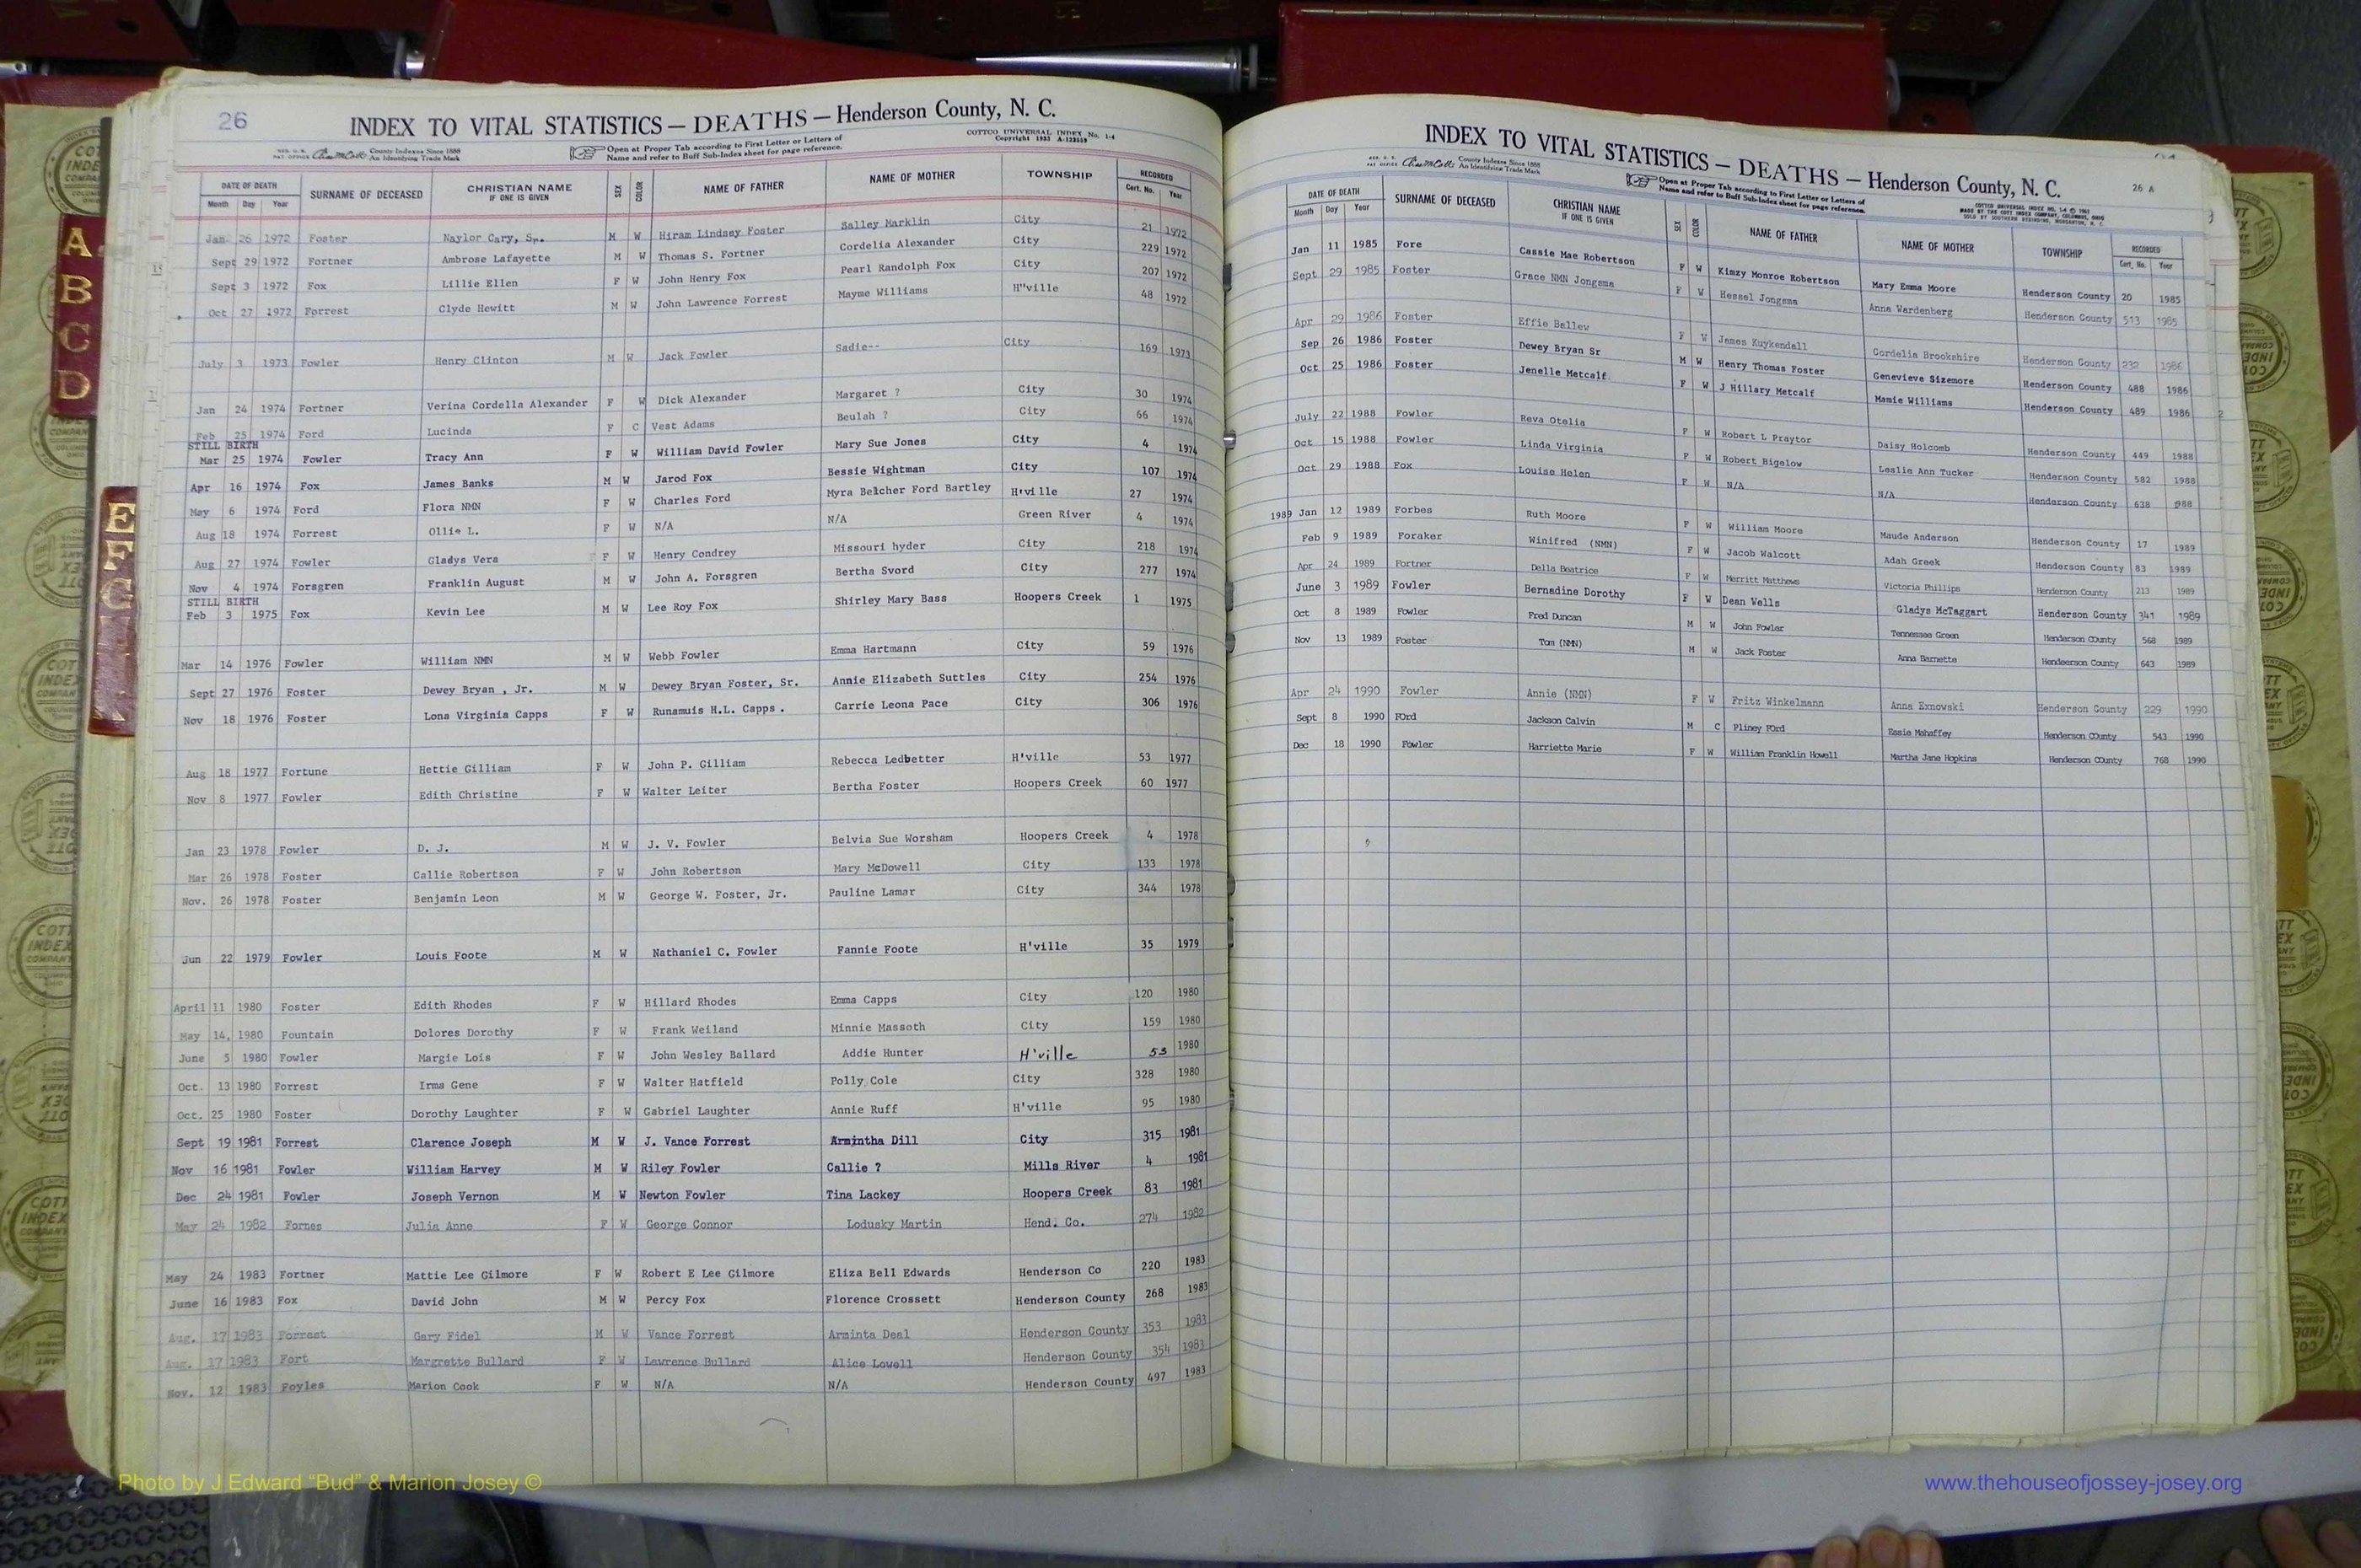 26
INDEX TO VITAL STATISTICS — DEATHS — Henderson County, N. C.
REG. U. S. PAT. OFFICE County Indexes Since 1888 An Identifying Trade Mark
Open at Proper Tab according to First Letter or Letters of Name and refer to Buff Sub-Index sheet for page reference.
COTTCO UNIVERSAL INDEX No. 1-4
DATE OF DEATH Month Day Year SURNAME OF DECEASED CHRISTIAN NAME IF ONE IS GIVEN SEX COLOR NAME OF FATHER NAME OF MOTHER TOWNSHIP RECORDED Cert. No. Year
Jan 26 1972 Foster Naylor Cary, Sr. M W Hiram Lindsey Foster Salley Marklin City 21 1972
Sept 29 1972 Fortner Ambrose Lafayette M W Thomas S. Fortner Cordelia Alexander City 229 1972
Sept 3 1972 Fox Lillie Ellen F W John Henry Fox Pearl Randolph Fox City 207 1972
Oct 27 1972 Forrest Clyde Hewitt M W John Lawrence Forrest Mayme Williams H"ville 48 1972
July 3 1973 Fowler Henry Clinton M W Jack Fowler Sadie-- City 169 1973
Jan 24 1974 Fortner Verina Cordella Alexander F W Dick Alexander Margaret ? City 30 1974
Feb 25 1974 Ford Lucinda F C Vest Adams Beulah ? City 66 1974
STILL BIRTH
Mar 25 1974 Fowler Tracy Ann F W William David Fowler Mary Sue Jones City 4 1974
Apr 16 1974 Fox James Banks M W Jarod Fox Bessie Wightman City 107 1974
May 6 1974 Ford Flora NMN F W Charles Ford Myra Belcher Ford Bartley H'ville 27 1974
Aug 18 1974 Forrest Ollie L. F W N/A N/A Green River 4 1974
Aug 27 1974 Fowler Gladys Vera F W Henry Condrey Missouri hyder City 218 1974
Nov 4 1974 Forsgren Franklin August M W John A. Forsgren Bertha Svord City 277 1974
STILL BIRTH
Feb 3 1975 Fox Kevin Lee M W Lee Roy Fox Shirley Mary Bass Hoopers Creek 1 1975
Mar 14 1976 Fowler William NMN M W Webb Fowler Emma Hartmann City 59 1976
Sept 27 1976 Foster Dewey Bryan , Jr. M W Dewey Bryan Foster, Sr. Annie Elizabeth Suttles City 254 1976
Nov 18 1976 Foster Lona Virginia Capps F W Runamuis H.L. Capps . Carrie Leona Pace City 306 1976
Aug 18 1977 Fortune Hettie Gilliam F W John P. Gilliam Rebecca Ledbetter H'ville 53 1977
Nov 8 1977 Fowler Edith Christine F W Walter Leiter Bertha Foster Hoopers Creek 60 1977
Jan 23 1978 Fowler D. J. M W J. V. Fowler Belvia Sue Worsham Hoopers Creek 4 1978
Mar 26 1978 Foster Callie Robertson F W John Robertson Mary McDowell City 133 1978
Nov. 26 1978 Foster Benjamin Leon M W George W. Foster, Jr. Pauline Lamar City 344 1978
Jun 22 1979 Fowler Louis Foote M W Nathaniel C. Fowler Fannie Foote H'ville 35 1979
April 11 1980 Foster Edith Rhodes F W Hillard Rhodes Emma Capps City 120 1980
May 14, 1980 Fountain Dolores Dorothy F W Frank Weiland Minnie Massoth City 159 1980
June 5 1980 Fowler Margie Lois F W John Wesley Ballard Addie Hunter H'ville 53 1980
Oct. 13 1980 Forrest Irma Gene F W Walter Hatfield Polly Cole City 328 1980
Oct. 25 1980 Foster Dorothy Laughter F W Gabriel Laughter Annie Ruff H'ville 95 1980
Sept 19 1981 Forrest Clarence Joseph M W J. Vance Forrest Armintha Dill City 315 1981
Nov 16 1981 Fowler William Harvey M W Riley Fowler Callie ? Mills River 4 1981
Dec 24 1981 Fowler Joseph Vernon M W Newton Fowler Tina Lackey Hoopers Creek 83 1981
May 24 1982 Fornes Julia Anne F W George Connor Lodusky Martin Hend. Co. 274 1982
May 24 1983 Fortner Mattie Lee Gilmore F W Robert E Lee Gilmore Eliza Bell Edwards Henderson Co 220 1983
June 16 1983 Fox David John M W Percy Fox Florence Crossett Henderson County 268 1983
Aug. 17 1983 Forrest Gary Fidel M W Vance Forrest Arminta Deal Henderson County 353 1983
Aug. 17 1983 Fort Margrette Bullard F W Lawrence Bullard Alice Lowell Henderson County 354 1983
Nov. 12 1983 Foyles Marion Cook F W N/A N/A Henderson County 497 1983
INDEX TO VITAL STATISTICS — DEATHS — Henderson County, N. C.
26 A
County Indexes Since 1888 An Identifying Trade Mark
Open at Proper Tab according to First Letter or Letters of Name and refer to Buff Sub-Index sheet for page reference.
DATE OF DEATH Month Day Year SURNAME OF DECEASED CHRISTIAN NAME IF ONE IS GIVEN SEX COLOR NAME OF FATHER NAME OF MOTHER TOWNSHIP RECORDED Cert. No. Year
Jan 11 1985 Fore Cassie Mae Robertson F W Kimzy Monroe Robertson Mary Emma Moore Henderson County 20 1985
Sept 29 1985 Foster Grace NMN Jongsma F W Hessel Jongsma Anna Wardenberg Henderson County 513 1985
Apr 29 1986 Foster Effie Ballew F W James Kuykendall Cordelia Brookshire Henderson County 232 1986
Sep 26 1986 Foster Dewey Bryan Sr M W Henry Thomas Foster Genevieve Sizemore Henderson County 488 1986
Oct 25 1986 Foster Jenelle Metcalf F W J Hillary Metcalf Mamie Williams Henderson County 489 1986
July 22 1988 Fowler Reva Otelia F W Robert L Praytor Daisy Holcomb Henderson County 449 1988
Oct 15 1988 Fowler Linda Virginia F W Robert Bigelow Leslie Ann Tucker Henderson County 582 1988
Oct 29 1988 Fox Louise Helen F W N/A N/A Henderson County 638 1988
1989 Jan 12 1989 Forbes Ruth Moore F W William Moore Maude Anderson Henderson County 17 1989
Feb 9 1989 Foraker Winifred (NMN) F W Jacob Walcott Adah Greek Henderson County 83 1989
Apr 24 1989 Fortner Della Beatrice F W Merritt Matthews Victoria Phillips Henderson County 213 1989
June 3 1989 Fowler Bernadine Dorothy F W Dean Wells Gladys McTaggart Henderson County 341 1989
Oct 8 1989 Fowler Fred Duncan M W John Fowler Tennessee Green Henderson County 568 1989
Nov 13 1989 Foster Tom (NMN) M W Jack Foster Anna Barnette Hendeerson County 643 1989
Apr 24 1990 Fowler Annie (NMN) F W Fritz Winkelmann Anna Exnowski Henderson County 229 1990
Sept 8 1990 FOrd Jackson Calvin M C Pliney FOrd Essie Mahaffey Henderson COunty 543 1990
Dec 18 1990 Fowler Harriette Marie F W William Franklin Howell Martha Jane Hopkins Henderson COunty 768 1990
A
B
C
D
E
F
G
Photo by J Edward “Bud” & Marion Josey ©
www.thehouseofjossey-josey.org